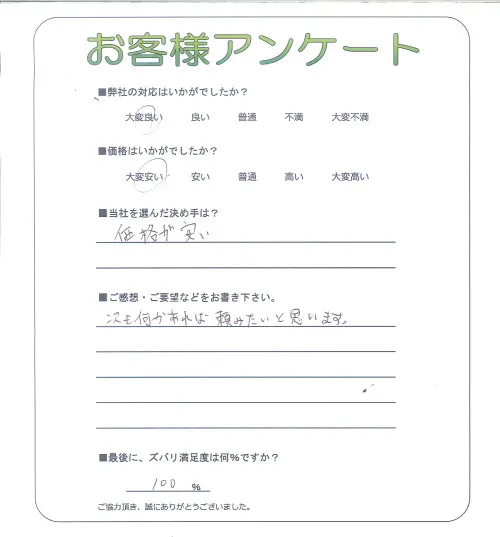 お客様アンケート
■弊社の対応はいかがでしたか？
大変良い 良い 普通 不満 大変不満
■価格はいかがでしたか？
大変安い 安い 普通 高い 大変高い
■当社を選んだ決め手は？
価格が安い
■ご感想・ご要望などをお書き下さい。
次も何かあれば頼みたいと思います。
■最後に、ズバリ満足度は何%ですか？
100 %
ご協力頂き、誠にありがとうございました。